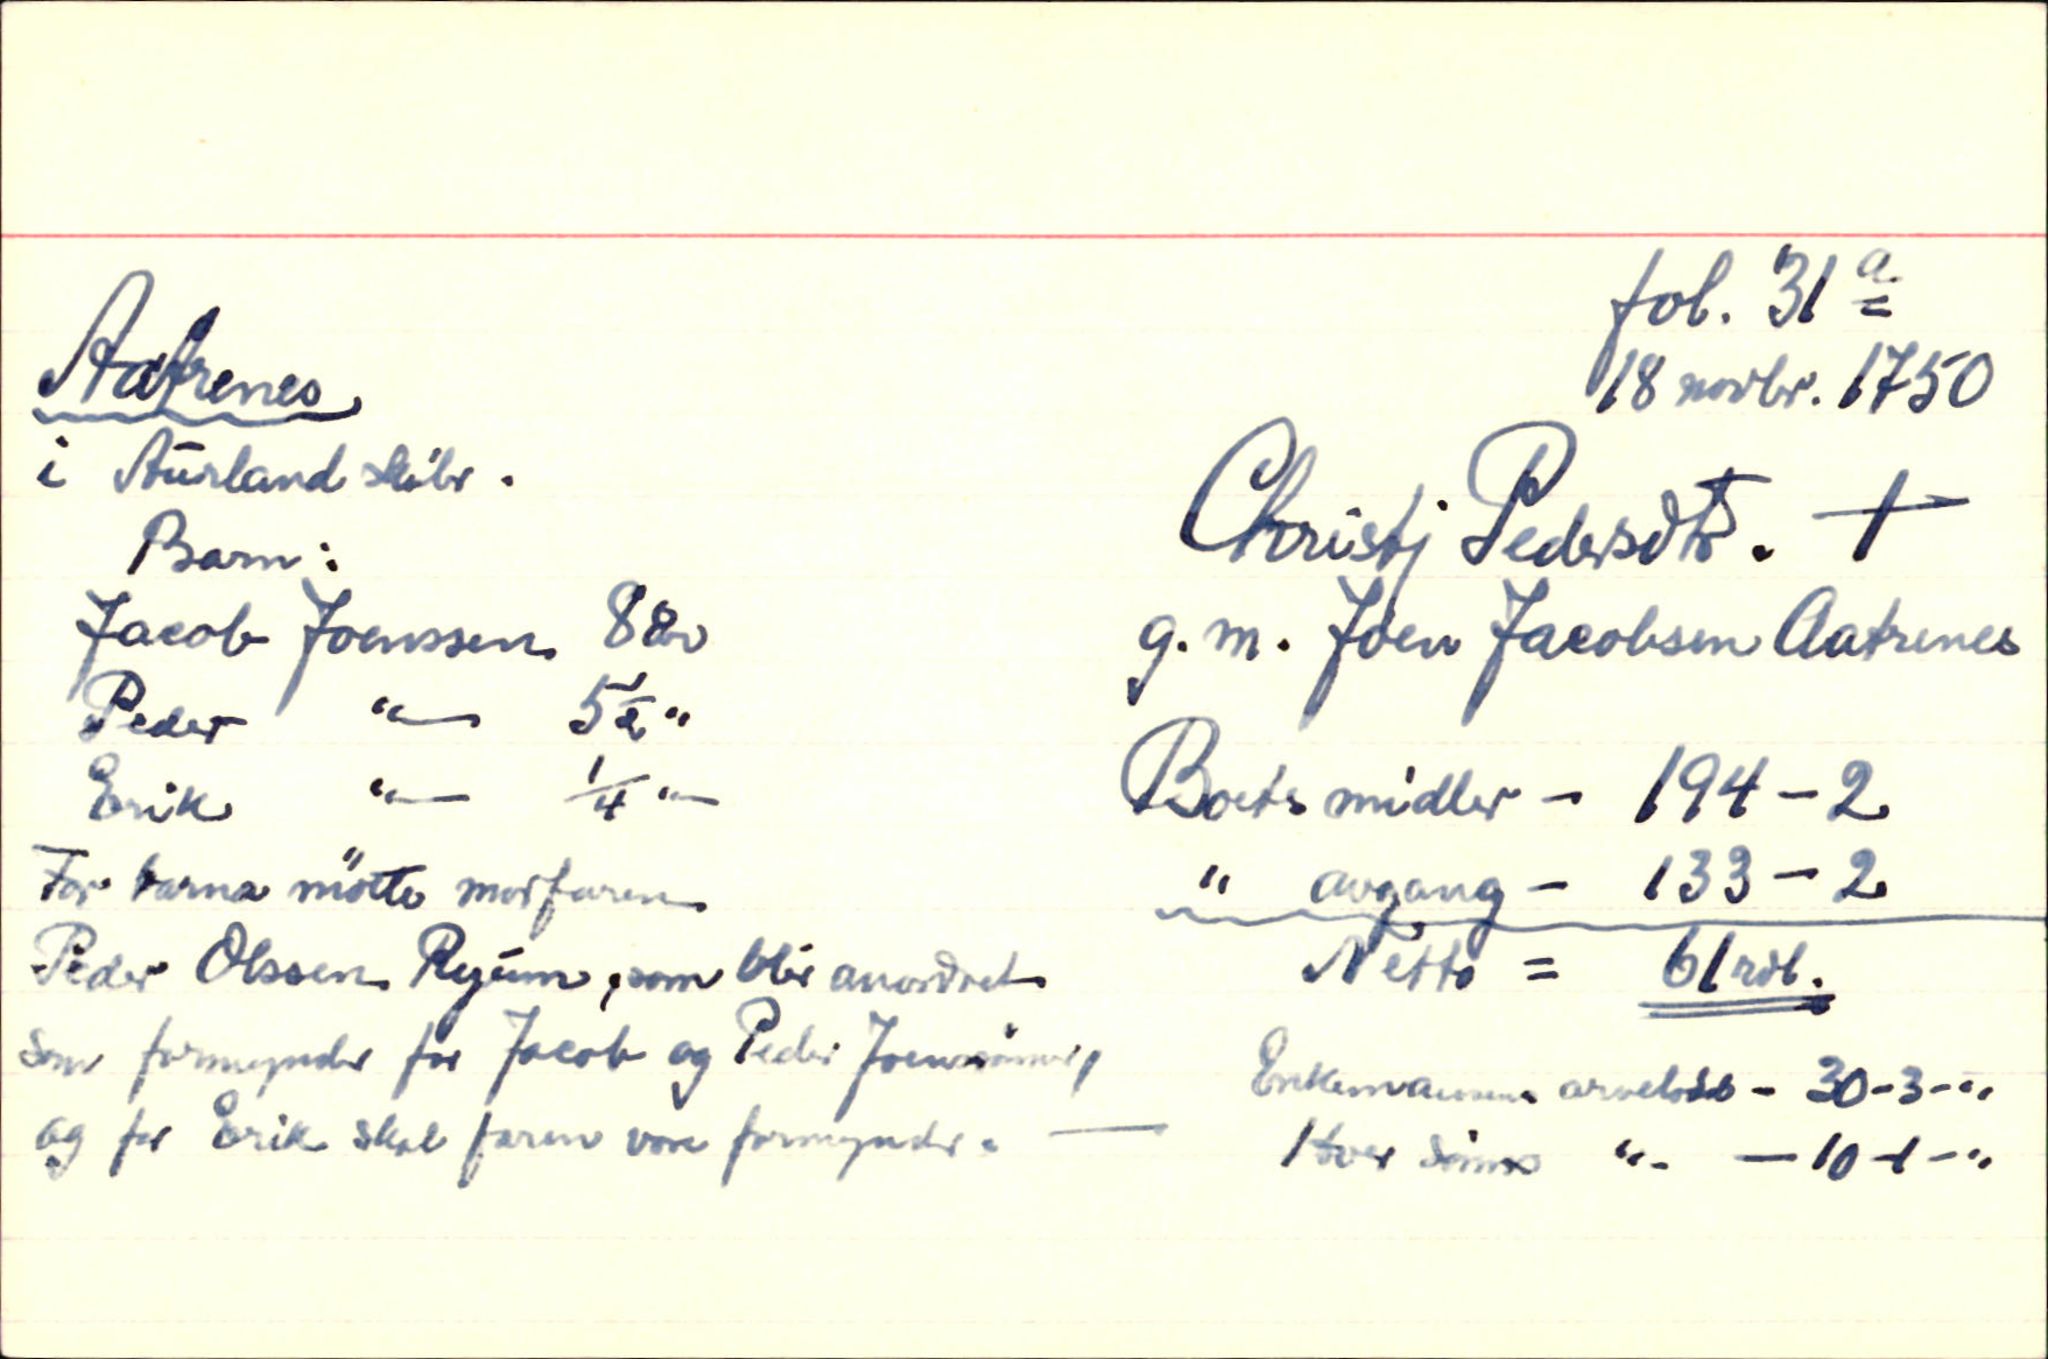 fol. 31 a
18 novbr. 1750
Aatrenes
i Aurland skibr.
Barn:
Jacob Joenssen 8 år
Peder "— 5 1/2 "
Erik "— 1/4 "—
For barna mötte morfaren
Peder Olssen Ryum, som blir anordnet
som formynder for Jacob og Peder Joensönner,
og for Erik skal faren være formynder. —
Christj Pedersdtr. †
g. m. Joen Jacobsen Aatrenes
Boets midler — 194 – 2
" avgang — 133 – 2
Netto = 61 rdl.
Enkemannens arvelodd – 30-3-"
Hver sönns "- — 10-1-"